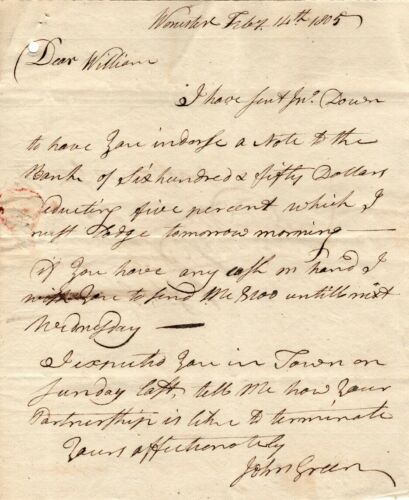 Worcester Feby. 14th 1805
Dear William
I have sent Jno. Down
to have You indorse a Note to the
Bank of Six hundred & fifty Dollars
deducting five percent which I
must lodge tomorrow morning —
if You have any cash in hand I
wish You to send Me $200 untill next
Wednesday —
I expected You in Town on
Sunday last, tell Me how Your
Partnership is like to terminate
Yours affectionately
John Green